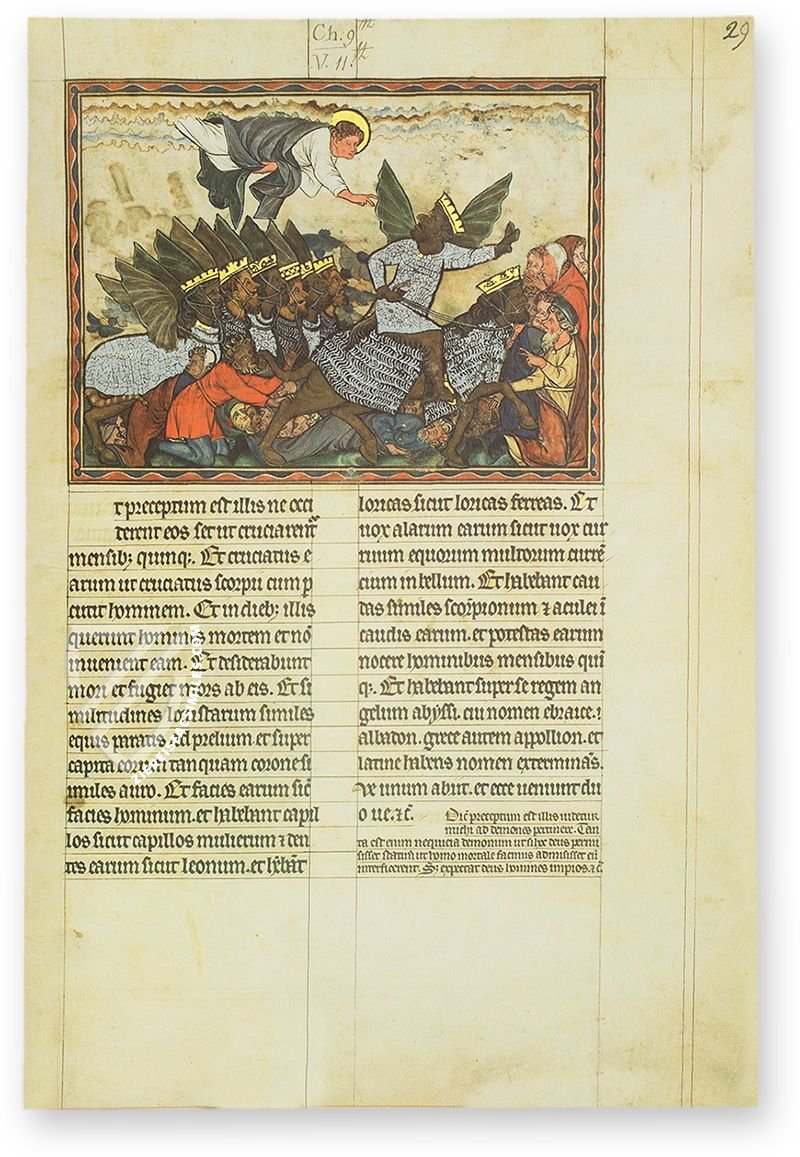 Ch. 9
V. 11.
29
t preceptum est illis ne occi
derent eos set ut cruciarent᷑
mensib; quinq:. Et cruciatus e
arum ut cruciatus scorpii cum p
cutit hominem. Et in dieb; illis
querunt homines mortem et nō
inuenient eam. Et desiderabunt
mori et fugiet mors ab eis. Et si
militudines locustarum similes
equis paratis ad prelium. et super
capita eorum tanquam corone si
miles auro. Et facies earum sic̄
facies hominum. et habebant capil
los sicut capillos mulierum ⁊ den
tes earum sicut leonum. et h̄eb̄at
loricas sicut loricas ferreas. Et
uox alarum earum sicut uox cur
ruum equorum multorum curre᷑
cium in bellum. Et habebant cau
das similes scorpionum ⁊ aculei ī
caudis earum. et potestas earum
nocere hominibus mensibus qui
q:. Et habebant super se regem an
gelum abyssi. cui nomen ebraice.
albadon. grece autem appollion. et
latine habens nomen exterminās.
Ve unum abiit. et ecce ueniunt du
o ue. ⁊c̄.
Qd̄ preceptum est illis uidetur
michi ad demones pertinere. Tan
ta est enim nequicia demonum ut si hoc deus permi
sisset statim ut homo mortale facinus admisisset eū
interficerent. S; expectat deus homines impios. ⁊ c̄